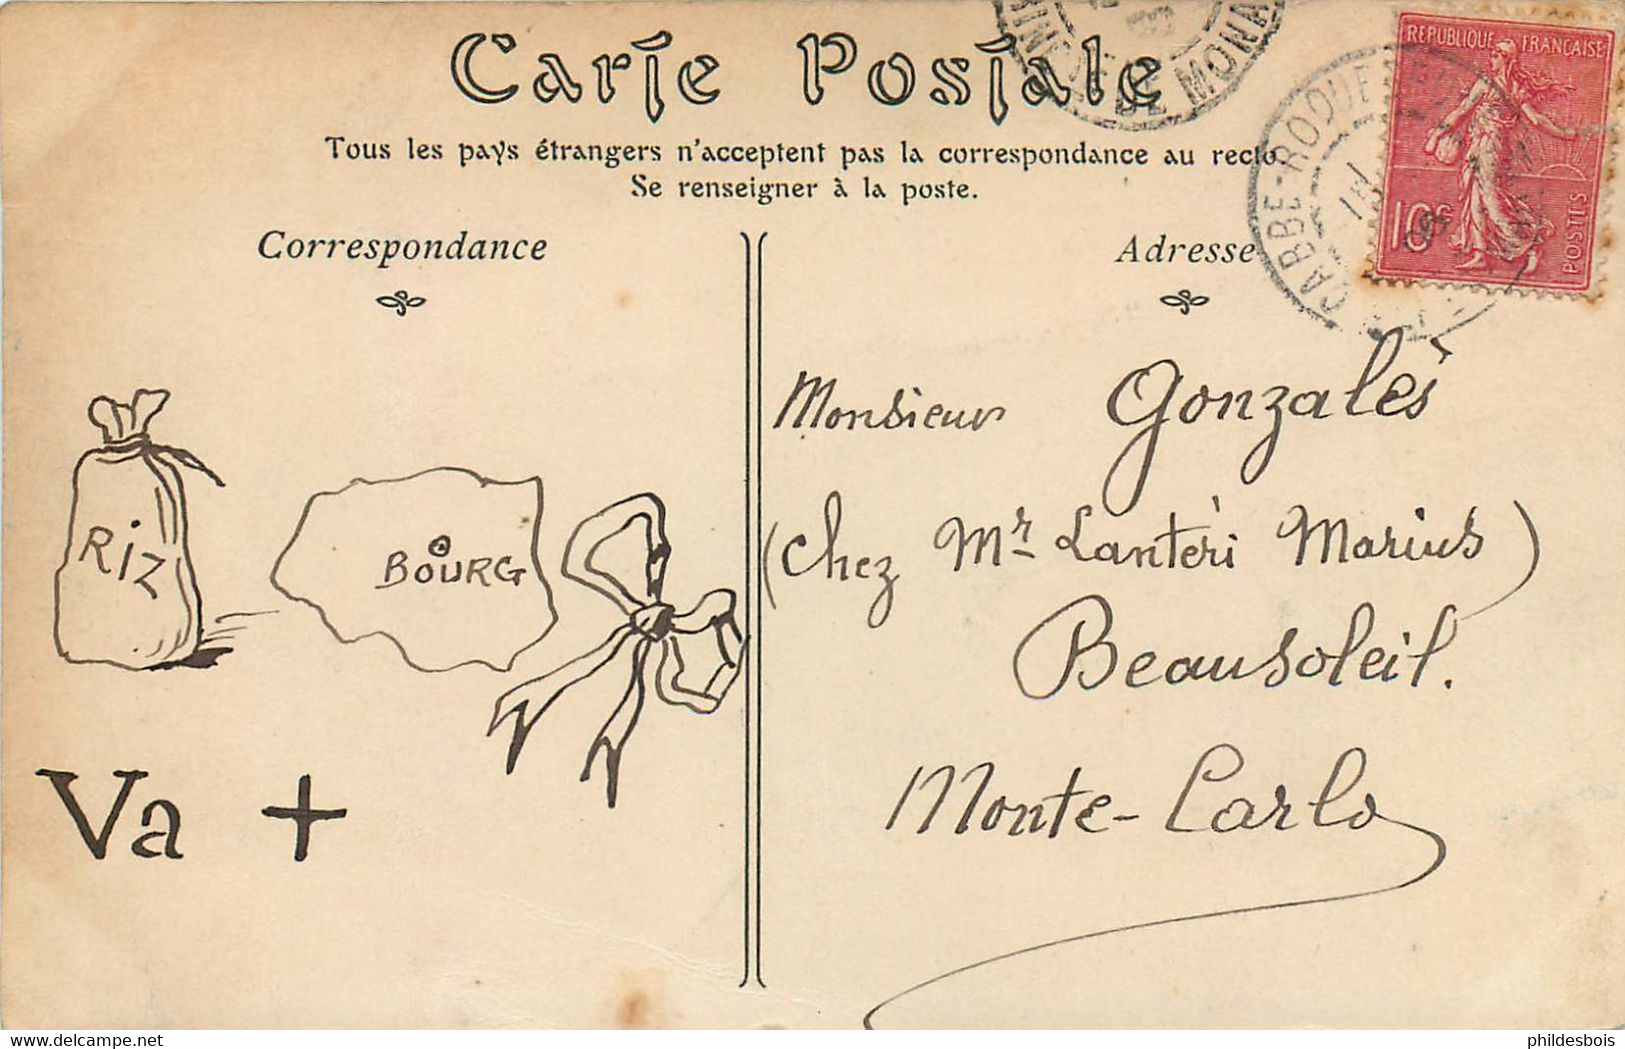 Carte Postale
Tous les pays étrangers n'acceptent pas la correspondance au recto
Se renseigner à la poste.
Correspondance
Adresse
REPUBLIQUE FRANCAISE
10c
POSTES
CABBE-ROQUE
DE MONA
Monsieur Gonzalès
(Chez Mr Lantéri Marius)
Beausoleil.
Monte-Carlo
RIZ
BOURG
Va +
www.delcampe.net
phildesbois